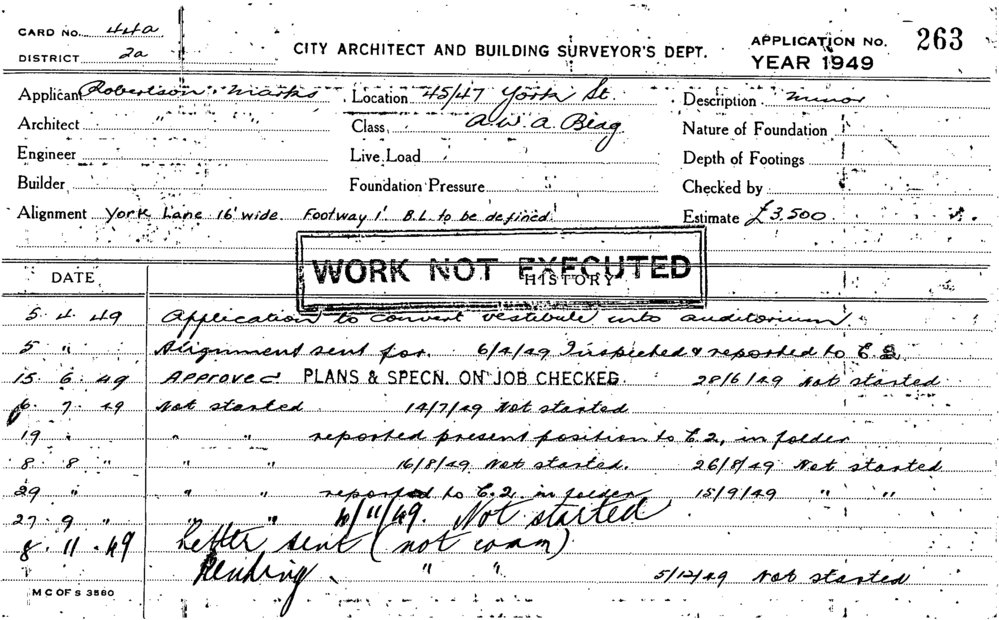 CARD NO. 44a
DISTRICT 2a
CITY ARCHITECT AND BUILDING SURVEYOR'S DEPT.
APPLICATION NO. 263
YEAR 1949
Applicant Robertson & Marks Location 45/47 York St. Description minor
Architect " " " Class A.W.A. Bldg Nature of Foundation
Engineer Live Load Depth of Footings
Builder Foundation Pressure Checked by
Alignment York Lane 16' wide. Footway 1' B.L. to be defined. Estimate £3,500
WORK NOT EXECUTED
DATE HISTORY
5. 4. 49 Application to convert vestibule into auditorium.
5 " Alignment sent for. 6/4/49 Inspected & reported to C.2
15. 6. 49 Approved PLANS & SPECN. ON JOB CHECKED. 28/6/49 Not started
6. 7. 49 Not started 14/7/49 Not started
19 " " " reported present position to C.2, in folder
8. 8 " " " 16/8/49 Not started. 26/8/49 Not started
29 " " " reported to C.2. in folder 15/9/49 " "
27. 9 " " " /11/49. Not started
8. 11. 49 Letter sent (not comm)
Pending " " 5/12/49 Not started
M C OF S 3560